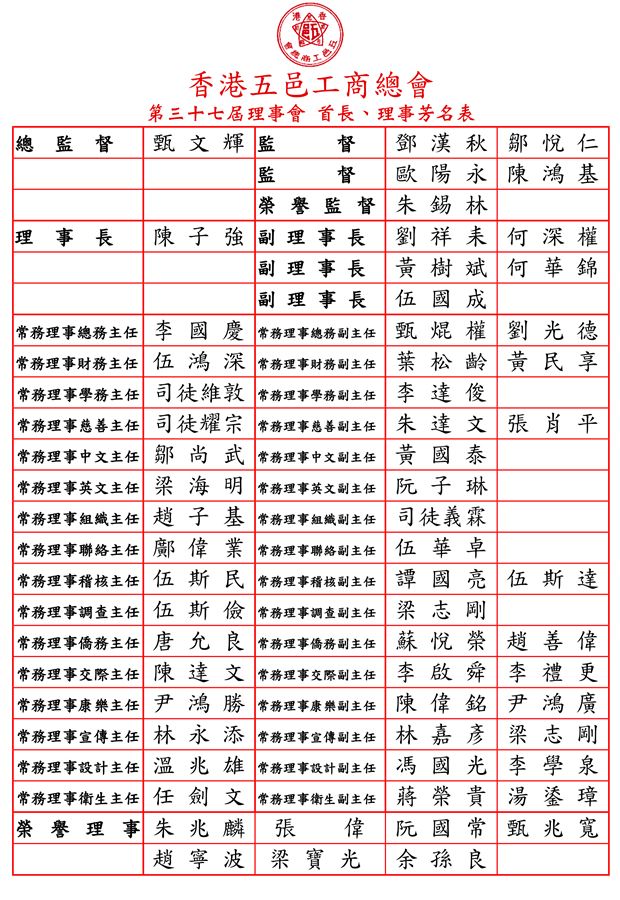 香港五邑工商總會
香港五邑工商總會
第三十七屆理事會 首長、理事芳名表
總監督 甄文輝 監督 鄧漢秋 鄒悅仁
監督 歐陽永 陳鴻基
榮譽監督 朱錫林
理事長 陳子強 副理事長 劉祥耒 何深權
副理事長 黃樹斌 何華錦
副理事長 伍國成
常務理事總務主任 李國慶 常務理事總務副主任 甄焜權 劉光德
常務理事財務主任 伍鴻深 常務理事財務副主任 葉松齡 黃民享
常務理事學務主任 司徒維敦 常務理事學務副主任 李達俊
常務理事慈善主任 司徒耀宗 常務理事慈善副主任 朱達文 張肖平
常務理事中文主任 鄒尚武 常務理事中文副主任 黃國泰
常務理事英文主任 梁海明 常務理事英文副主任 阮子琳
常務理事組織主任 趙子基 常務理事組織副主任 司徒義霖
常務理事聯絡主任 鄺偉業 常務理事聯絡副主任 伍華卓
常務理事稽核主任 伍斯民 常務理事稽核副主任 譚國亮 伍斯達
常務理事調查主任 伍斯儉 常務理事調查副主任 梁志剛
常務理事僑務主任 唐允良 常務理事僑務副主任 蘇悅榮 趙善偉
常務理事交際主任 陳達文 常務理事交際副主任 李啟舜 李禮更
常務理事康樂主任 尹鴻勝 常務理事康樂副主任 陳偉銘 尹鴻廣
常務理事宣傳主任 林永添 常務理事宣傳副主任 林嘉彥 梁志剛
常務理事設計主任 溫兆雄 常務理事設計副主任 馮國光 李學泉
常務理事衛生主任 任劍文 常務理事衛生副主任 蔣榮貴 湯鋈璋
榮譽理事 朱兆麟 張偉 阮國常 甄兆寬
趙寧波 梁寶光 余孫良